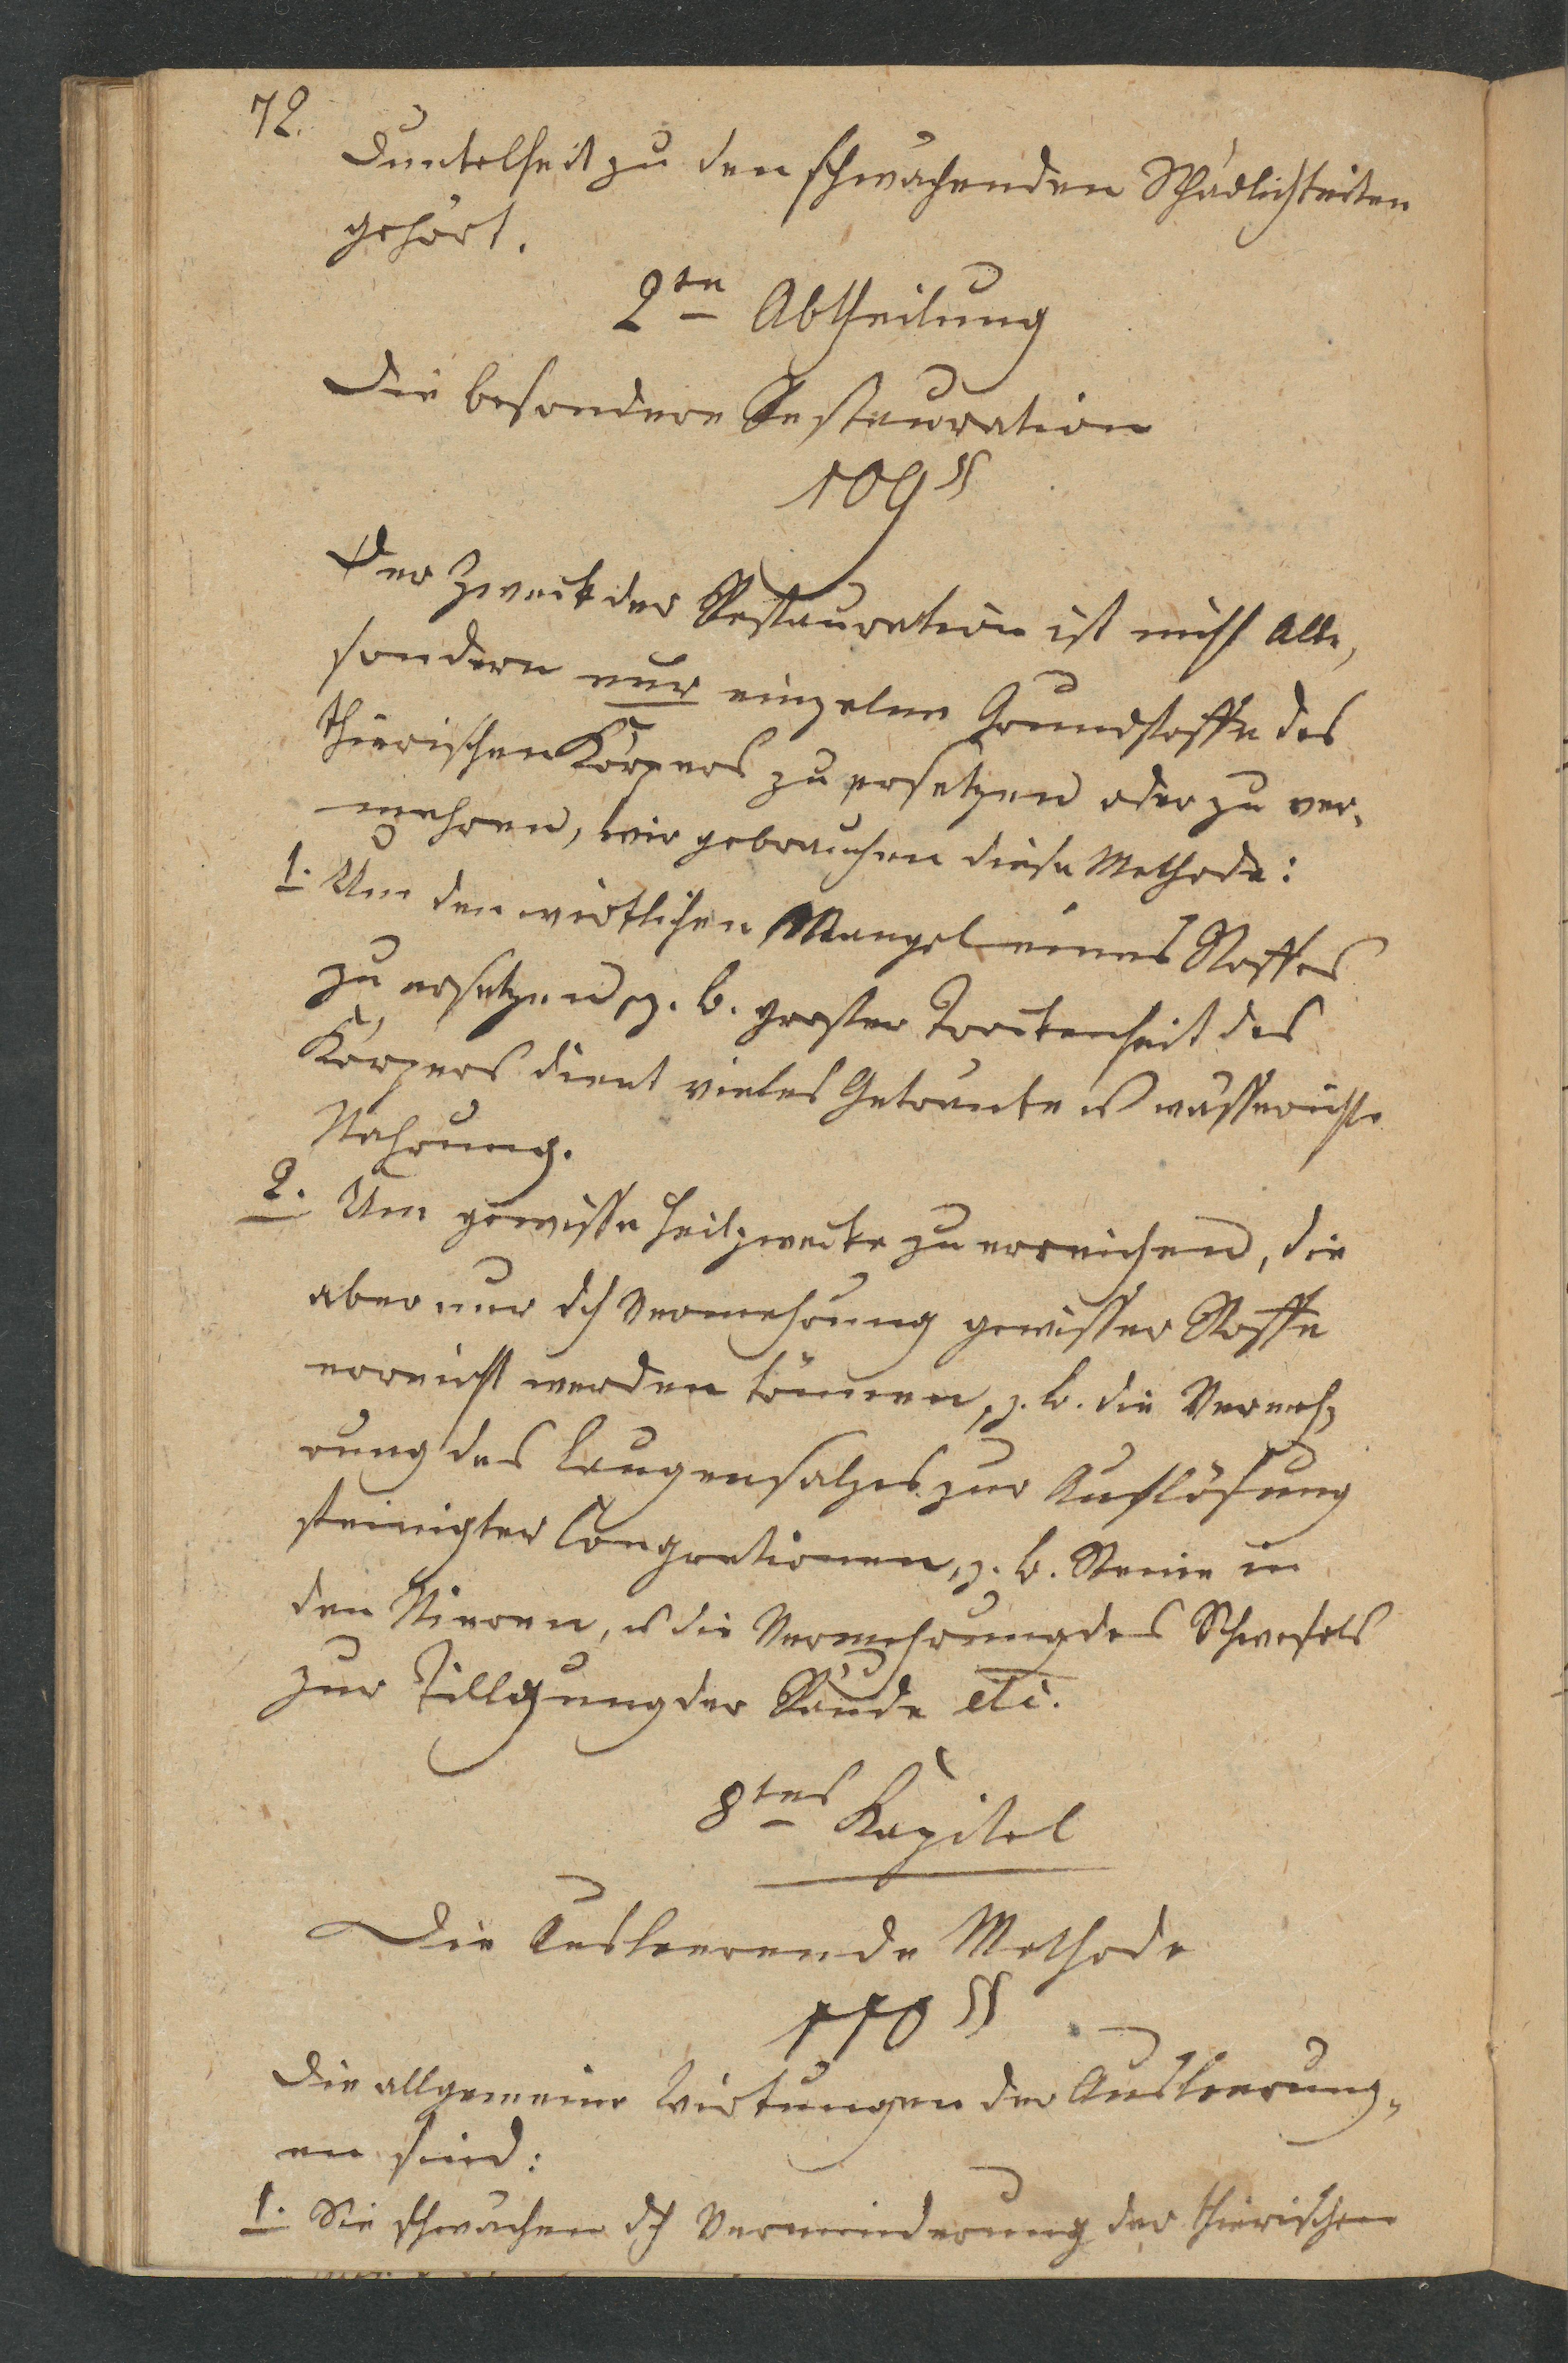 72.
Dunkelheit zu den schwächenden Schädlichkeiten
gehört.
2te Abtheilung
Die besondere Restauration
109 §
Der Zweck der Restauration ist nicht Alle,
sondern nur einzelne Grundstoffe des
thierischen Körpers zu ersetzen oder zu ver-
mehren, wir gebrauchen diese Methode:
1. Um den wirklichen Mangel eines Stoffes
zu ersetzen, z. B. großer Trockenheit des
Körpers dient vieles Getränke u wässerichte
Nahrung.
2. Um gewisse Heilzwecke zu erreichen, die
aber nur dch Vermehrung gewisser Stoffe
erreicht werden können, z. B. die Vermeh-
rung des Laugensalzes zur Auflösung
steinigter Congretionen, z. B. Steine in
den Nieren, u die Vermehrung des Schwefels
zur Tillgung der Räude etc.
8tes Kapitel
Die Ausleerende Methode
110 §
Die allgemeine Wirkungen der Ausleerung-
en sind:
1. Sie schwächen dch Verminderung der thierischen